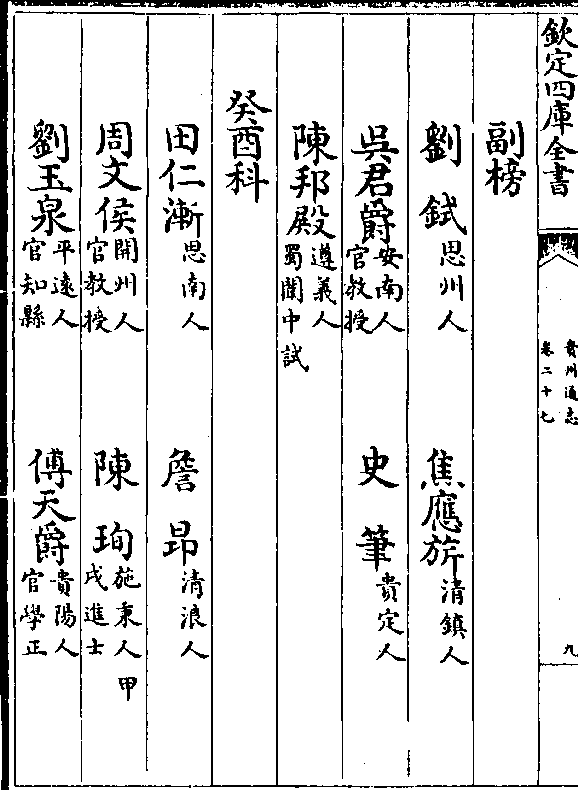 欽定四庫全書
貴州通志
卷二十七
九
副榜
劉 鉽 思州人
焦應旂 清鎮人
吳君爵 安南人 官教授
史 筆 貴定人
陳邦殿 遵義人 蜀闈中試
癸酉科
田仁漸 思南人
詹 昂 清浪人
周文侯 開州人 官教授
陳 珣 施秉人 甲戌進士
劉玉泉 平遠人 官知縣
傅天爵 貴陽人 官學正